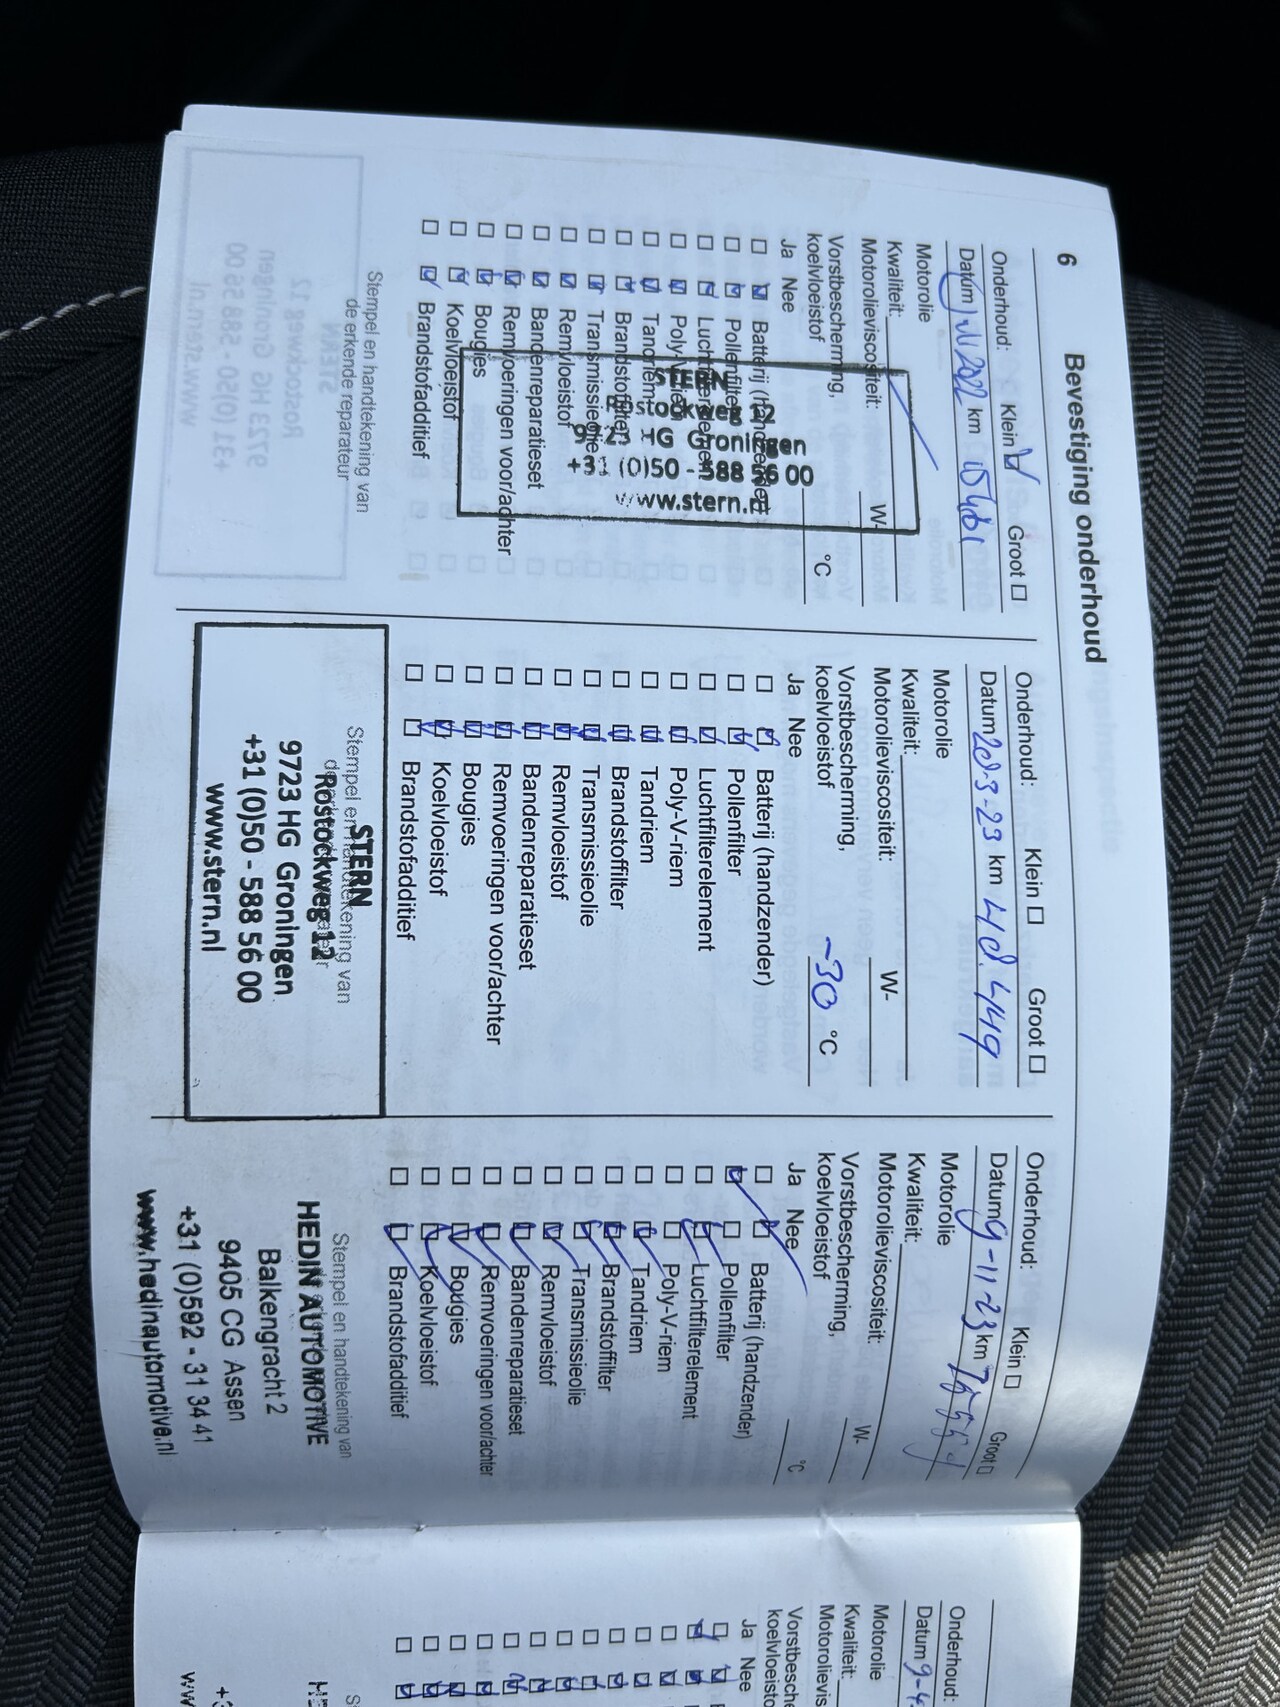 6 Bevestiging onderhoud
Onderhoud: Klein Groot
Datum jul 2022 km
Motorolie
Kwaliteit:
Motorolieviscositeit: W-
Vorstbescherming,
koelvloeistof °C
Ja Nee
Batterij (handzender)
Pollenfilter
Luchtfilterelement
Poly-V-riem
Tandriem
Brandstoffilter
Transmissieolie
Remvloeistof
Bandenreparatieset
Remvoeringen voor/achter
Bougies
Koelvloeistof
Brandstofadditief
STERN
Rostockweg 12
9723 HG Groningen
+31 (0)50 - 588 56 00
www.stern.nl
Stempel en handtekening van
de erkende reparateur
Onderhoud: Klein Groot
Datum 28-3-23 km 48.449
Motorolie
Kwaliteit:
Motorolieviscositeit: W-
Vorstbescherming,
koelvloeistof -30 °C
Ja Nee
Batterij (handzender)
Pollenfilter
Luchtfilterelement
Poly-V-riem
Tandriem
Brandstoffilter
Transmissieolie
Remvloeistof
Bandenreparatieset
Remvoeringen voor/achter
Bougies
Koelvloeistof
Brandstofadditief
Stempel en handtekening van
STERN
Rostockweg 12
9723 HG Groningen
+31 (0)50 - 588 56 00
www.stern.nl
Onderhoud: Klein Groot
Datum 9-11-23 km
Motorolie
Kwaliteit:
Motorolieviscositeit: W-
Vorstbescherming,
koelvloeistof °C
Ja Nee
Batterij (handzender)
Pollenfilter
Luchtfilterelement
Poly-V-riem
Tandriem
Brandstoffilter
Transmissieolie
Remvloeistof
Bandenreparatieset
Remvoeringen voor/achter
Bougies
Koelvloeistof
Brandstofadditief
Stempel en handtekening van
HEDIN AUTOMOTIVE
Balkengracht 2
9405 CG Assen
+31 (0)592 - 31 34 41
www.hedinautomotive.nl
Onderhoud:
Datum 9-4
Motorolie
Kwaliteit:
Motorolievis
Vorstbesche
koelvloeisto
Ja Nee